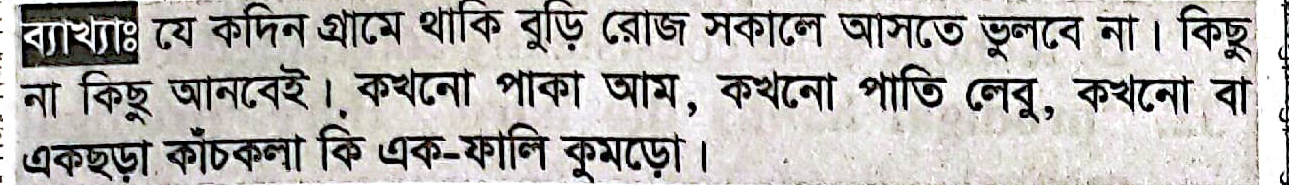 ব্যাখ্যাঃ যে কদিন গ্রামে থাকি বুড়ি রোজ সকালে আসতে ভুলবে না। কিছু
না কিছু আনবেই। কখনো পাকা আম, কখনো পাতি লেবু, কখনো বা
একছড়া কাঁচকলা কি এক-ফালি কুমড়ো।